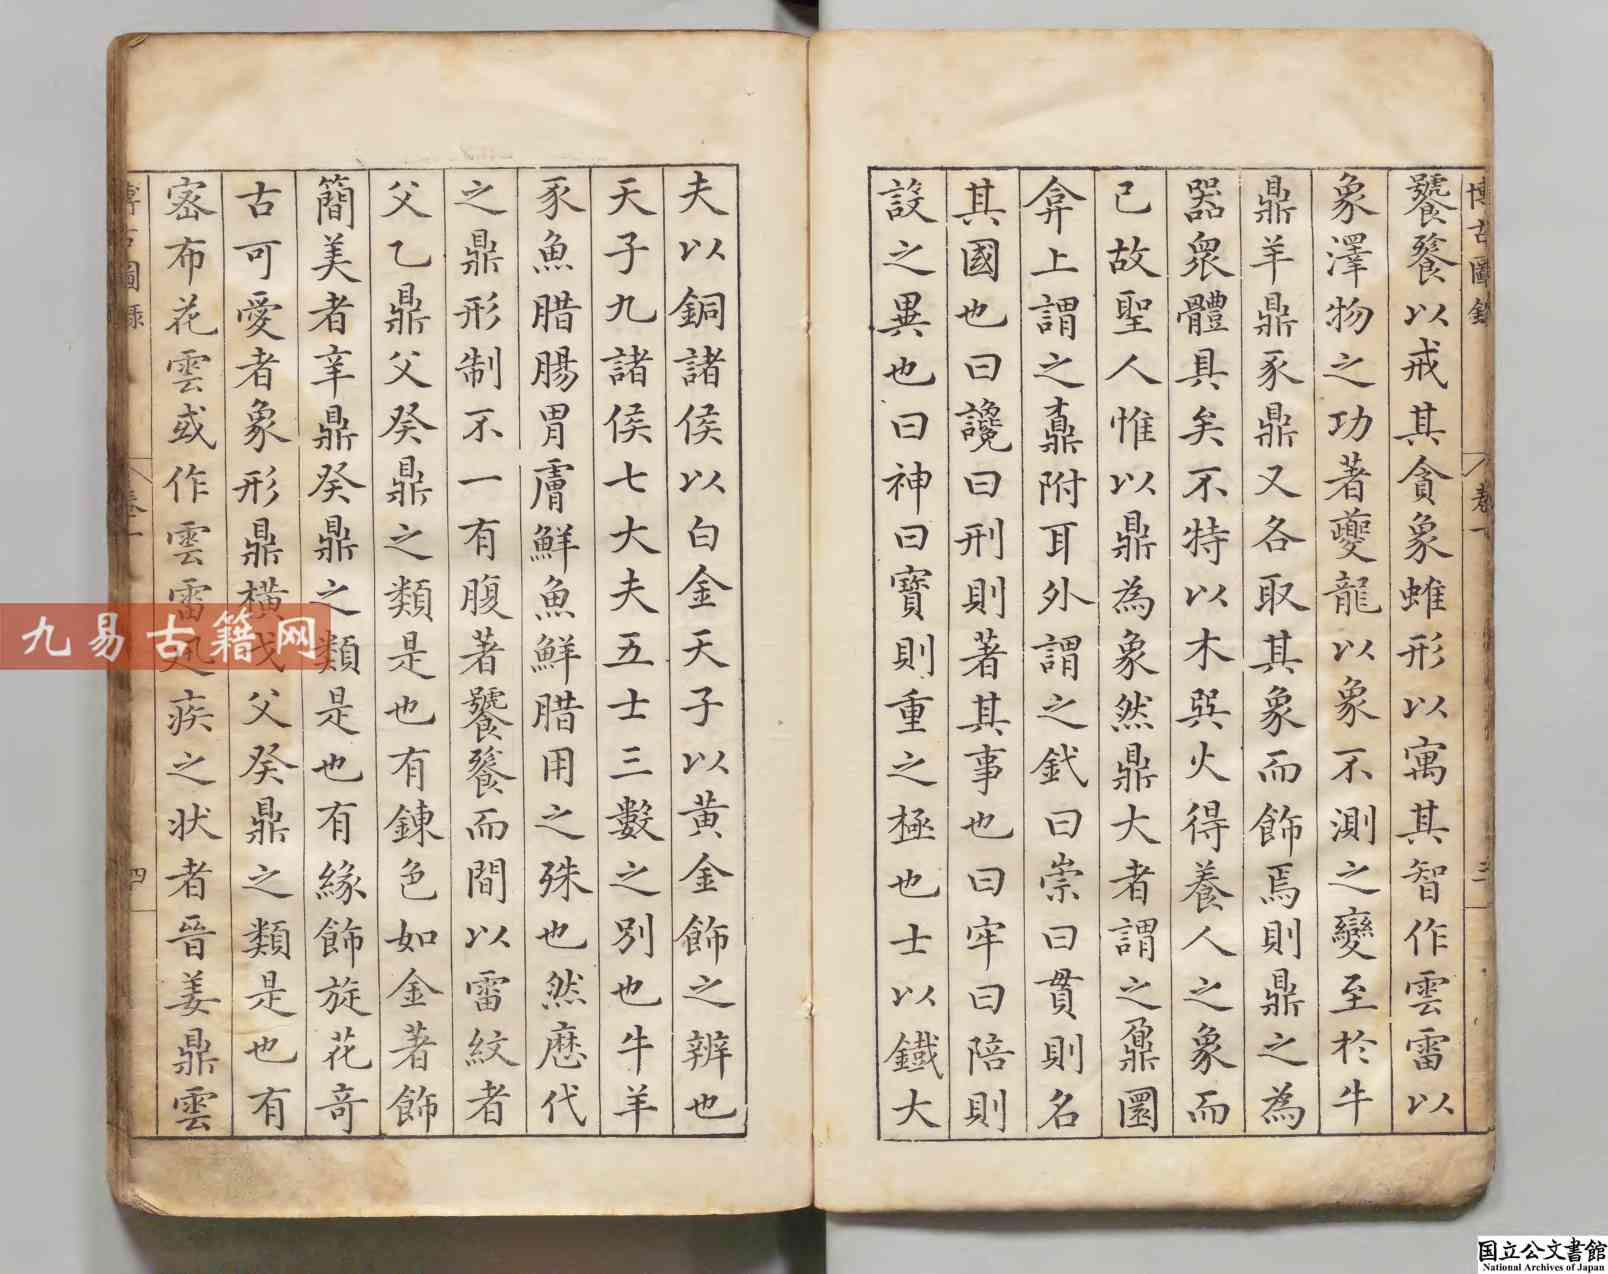 博古圖錄 卷一 三
饕餮以戒其貪象蜼形以寓其智作雲雷以
象澤物之功著夔龍以象不測之變至於牛
鼎羊鼎豕鼎又各取其象而飾焉則鼎之為
器衆體具矣不特以木巽火得養人之象而
已故聖人惟以鼎為象然鼎大者謂之鼐圜
弇上謂之鼒附耳外謂之釴曰崇曰貫則名
其國也曰讒曰刑則著其事也曰牢曰陪則
設之異也曰神曰寶則重之極也士以鐵大
夫以銅諸侯以白金天子以黃金飾之辨也
天子九諸侯七大夫五士三數之別也牛羊
豕魚腊腸胃膚鮮魚鮮腊用之殊也然歷代
之鼎形制不一有腹著饕餮而間以雷紋者
父乙鼎父癸鼎之類是也有鍊色如金著飾
簡美者辛鼎癸鼎之類是也有緣飾旋花奇
古可愛者象形鼎橫戈父癸鼎之類是也有
密布花雲或作雲雷迅疾之狀者晉姜鼎雲
博古圖錄 卷一 四
九易古籍网
国立公文書館
National Archives of Japan